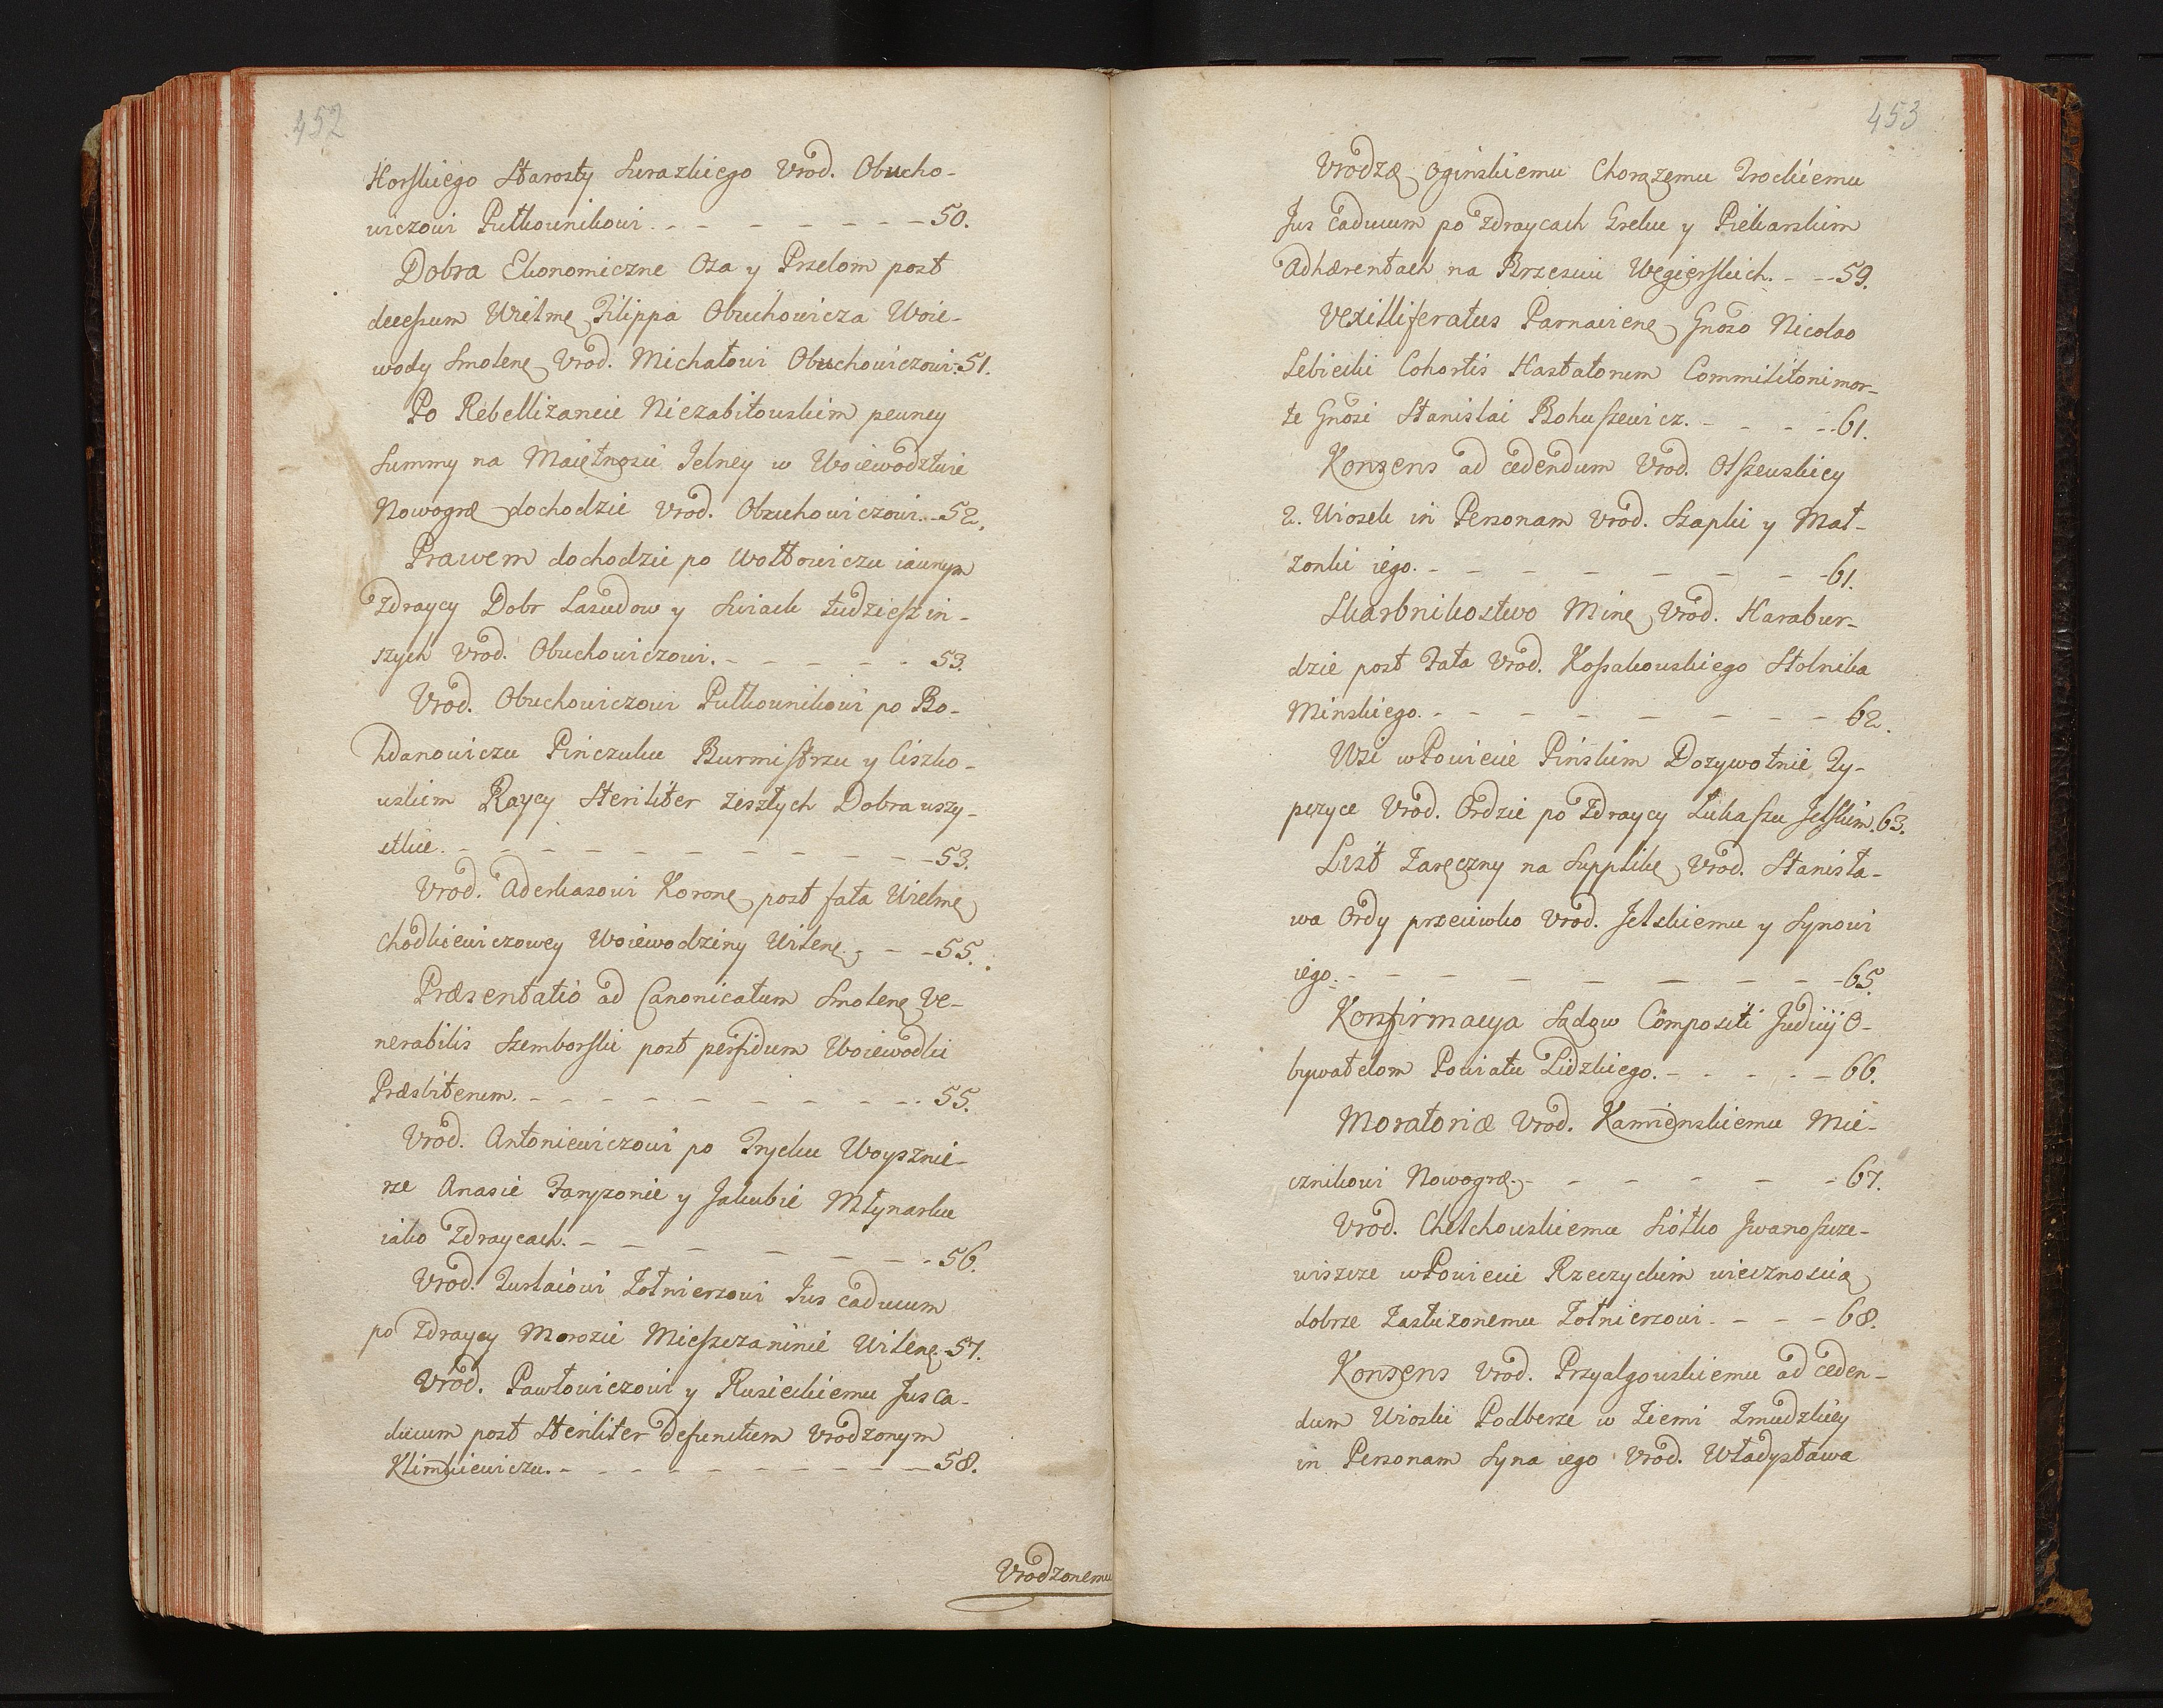 452
Horskiego Starosty Surazkiego Vrod. Obucho-
wiczowi Pułkownikowi. - - - - - - 50.
Dobra Ekonomiczne Oza y Przelom post
decessum Wielmę Filippa Obuchowicza Woie-
wody Smolenę Vrod. Michałowi Obuchowiczowi. 51.
Po Rebellizancie Niezabitouskim pewney
Summy na Maiętnosci Jelney w Woiewodztwie
Nowogræ dochodzić Vrod. Obuchowiczowi. - 52.
Prawem dochodzić po Wołłowiczu iawnym
Zdraycy Dobr Lasudow y Swiack tudziesz in-
szych Vrod. Obuchowiczowi. - - - - - 53.
Vrod. Obuchowiczowi Pułkownikowi po Bo-
hdanowiczu Pinczuku Burmistrzu y Ciszko-
uskim Raycy Steriliter zeszłych Dobra wszy-
stkie. - - - - - - - - - - 53.
Vrod. Aderkasowi Koronę post fata Wielmę
Chodkiewiczowey Woiewodziny Wilenę. - - 55.
Præsentatio ad Canonicatum Smolenę Ve-
nerabilis Szemborski post perfidum Woiewodki
Præsbiterum. - - - - - - - - - 55.
Vrod. Antoniewiczowi po Irycku Woysznie-
rze Anasie Faryzonie y Jakubie Młynarku
iako Zdraycach. - - - - - - - 56.
Vrod. Turłaiowi Zołnierzowi Jus caducum
po Zdraycy Morozie Miesszczaninie Wilenę. 57.
Vrod. Pawłowiczowi y Rusieckiemu Jus ca-
ducum post Steriliter defunctum Vrodzonym
Klimkiewiczu. - - - - - - - - 58.
Vrodzonemu
453
Vrodzæ Oginskiemu Chorązemu Trockiemu
Jus Caducum po Zdraycach Grelu y Piekarskim
Adhærentach na Brzesciu Węgierskich. - - 59.
Vexilliferatus Parnavienę Gnoso Nicolao
Lebiecki Cohortis Hastatorum Commilitoni mor-
te Gnosi Stanislai Bohuszewicz. - - - - 61.
Konsens ad cedendum Vrod. Olszewskiey
2. Wiosek in Personam Vrod. Szapki y Mał-
zonki iego. - - - - - - - - 61.
Skarbnikostwo Minę Vrod. Harabur-
dzie post Fata Vrod. Kossakouskiego Stolnika
Minskiego. - - - - - - - - 62.
Wsi w Powiecie Pinskim Dozywotnie Ty-
peryce Vrod. Ordzie po Zdraycy Łukaszu Jelskim. 63.
List Zaręczny na Supplikę Vrod. Stanisła-
wa Ordy przeciwko Vrod. Jelskiemu y Synowi
iego. - - - - - - - - 65.
Konfirmacya Sądow Compositi Judicij O-
bywatelom Powiatu Lidzkiego. - - - - - 66.
Moratoriæ Vrod. Kamienskiemu Mie-
cznikowi Nowogræ. - - - - - - - 67.
Vrod. Chelchouskiemu Siołko Jwanoszcze-
wiszcze w Powiecie Rzeczyckim wiecznoscią
dobrze Zasłuzonemu Zołnierzowi. - - - - 68.
Konsens Vrod. Przyalgouskiemu ad ceden-
dum Wioski Podberze w Ziemi Zmudzkiey
in Personam Syna iego Vrod. Władysława